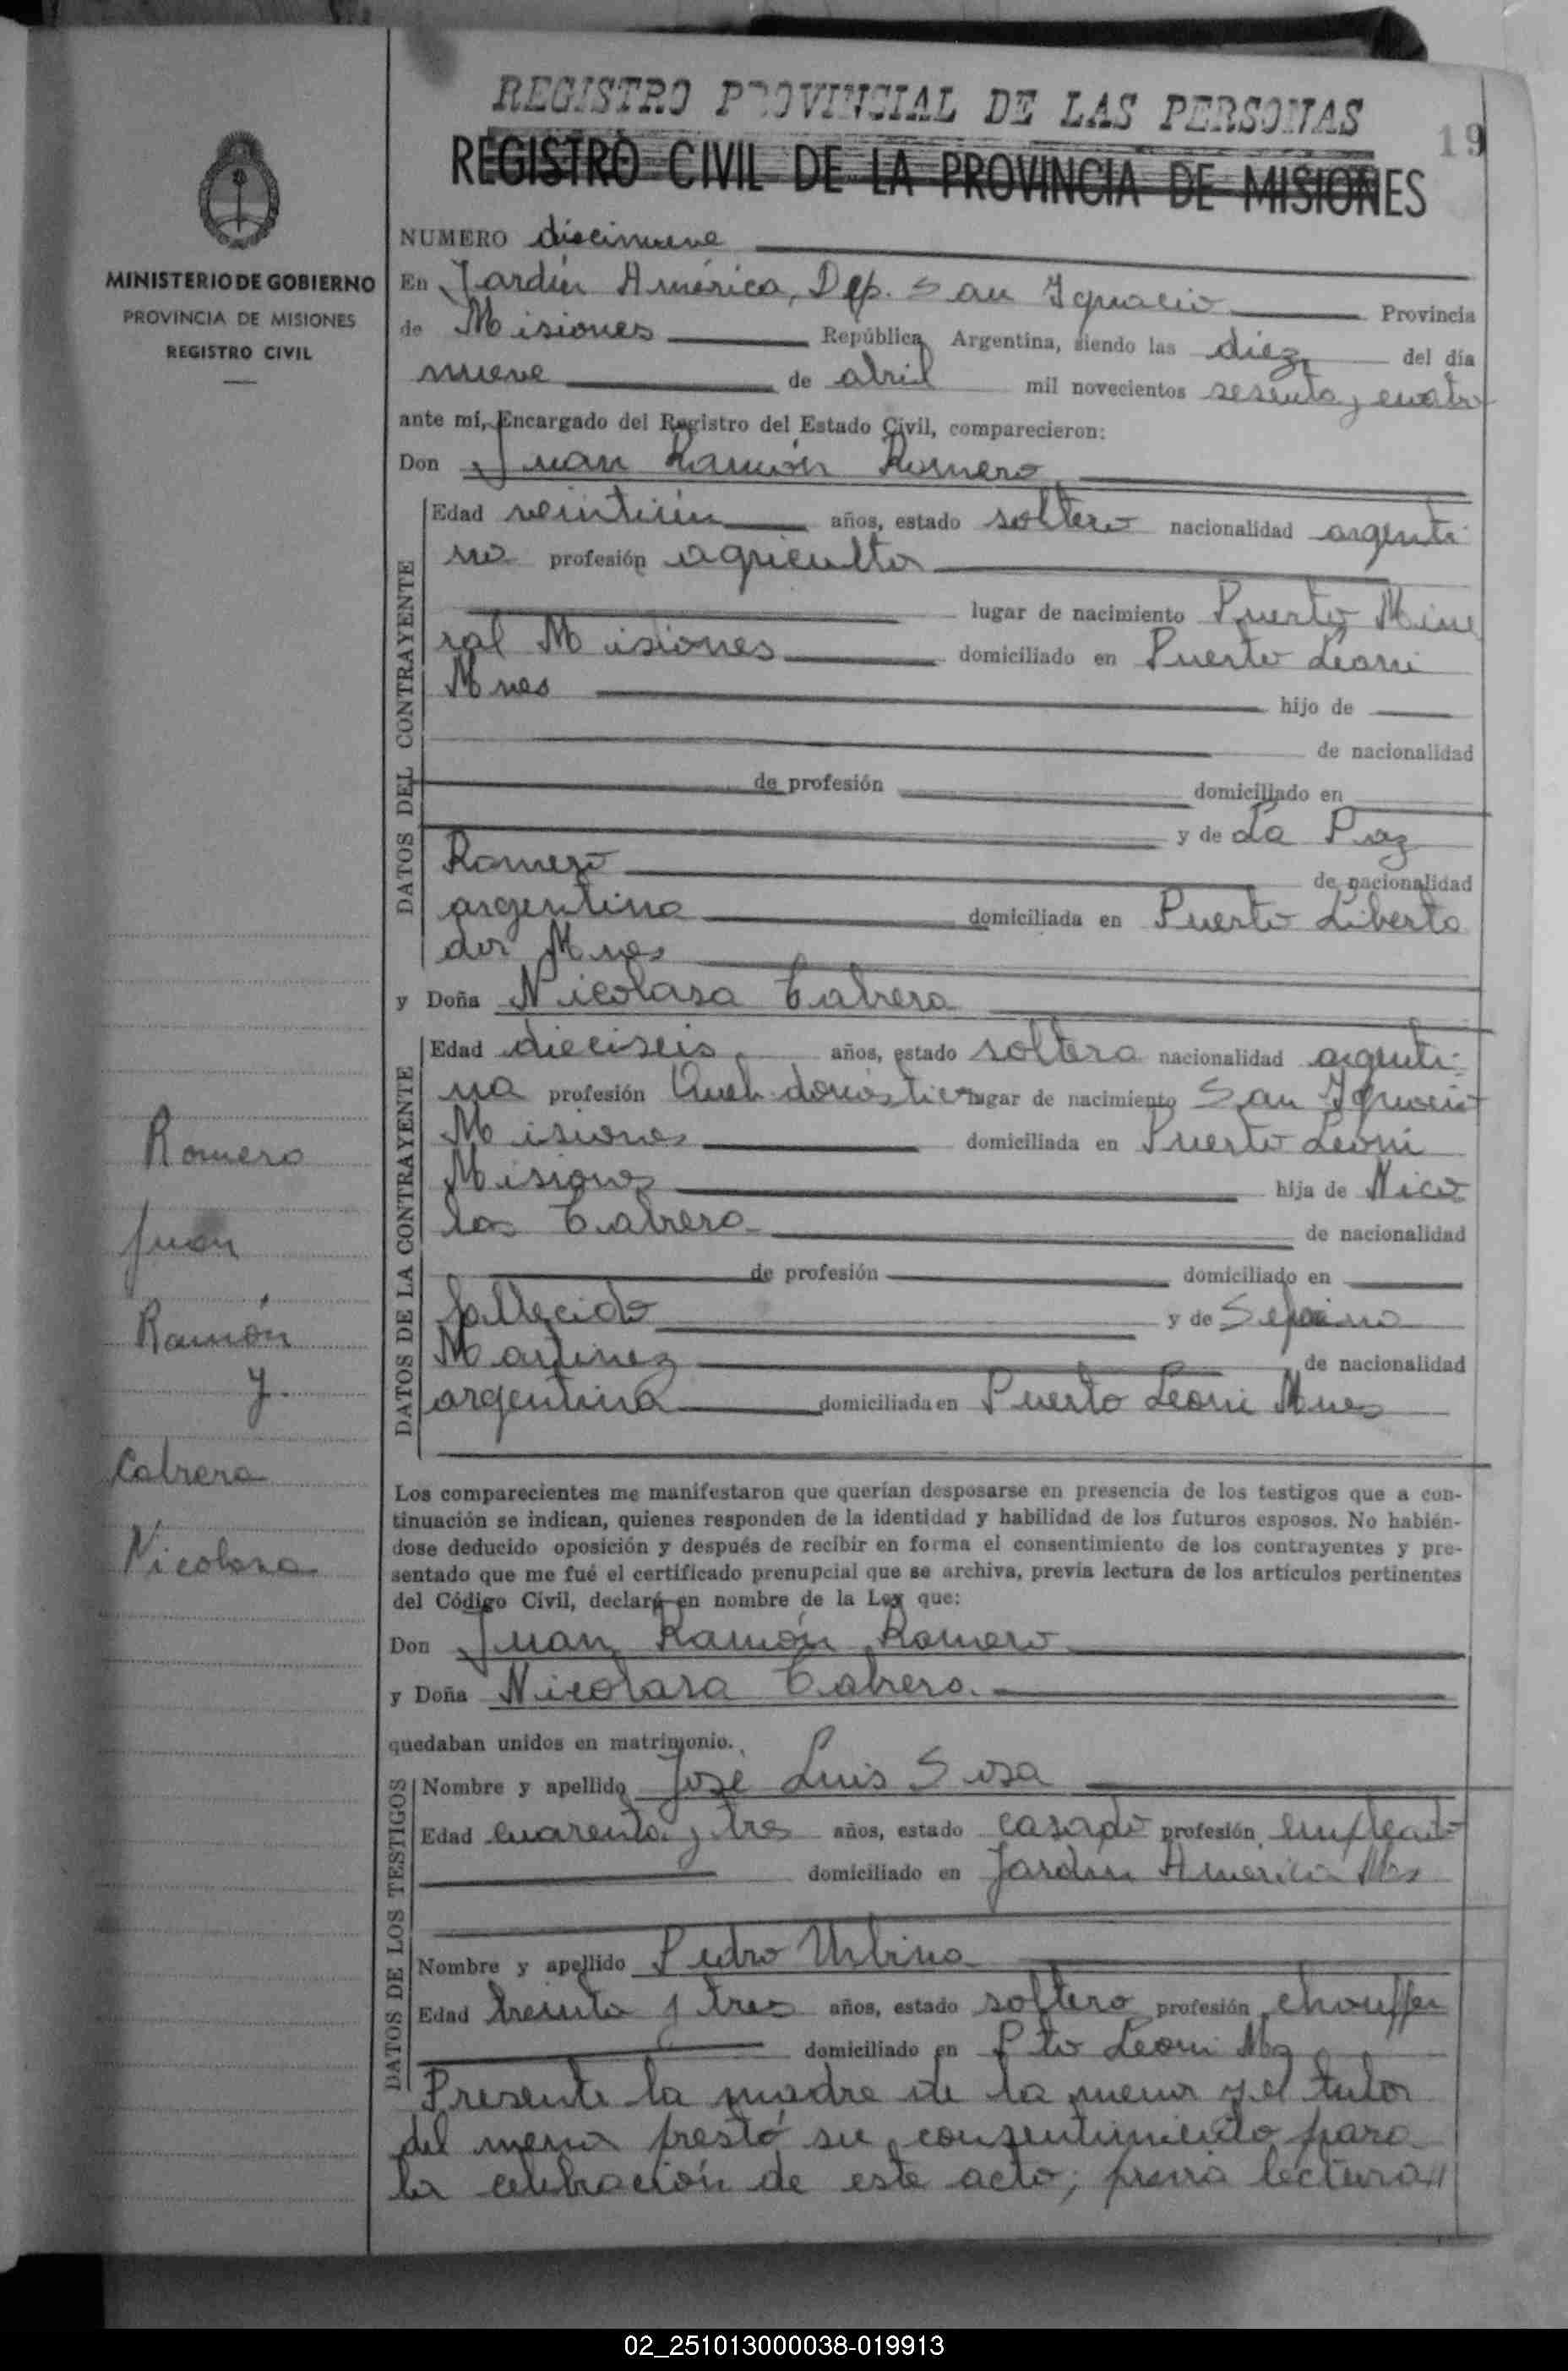 REGISTRO PROVINCIAL DE LAS PERSONAS
19
REGISTRO CIVIL DE LA PROVINCIA DE MISIONES
MINISTERIO DE GOBIERNO
PROVINCIA DE MISIONES
REGISTRO CIVIL
NUMERO diecinueve
En Jardín América, Dep. San Ignacio Provincia
de Misiones República Argentina, siendo las diez del día
nueve de abril mil novecientos sesenta y cuatro
ante mí, Encargado del Registro del Estado Civil, comparecieron:
Don Juan Ramón Romero
DATOS DEL CONTRAYENTE
Edad veintiún años, estado soltero nacionalidad argenti-
no profesión agricultor
lugar de nacimiento Puerto Mine
ral Misiones domiciliado en Puerto Leoni
Mnes hijo de
de nacionalidad
de profesión domiciliado en
y de La Paz
Romero de nacionalidad
argentina domiciliada en Puerto Liberta
dor Mnes
y Doña Nicolasa Cabrera
DATOS DE LA CONTRAYENTE
Edad dieciseis años, estado soltera nacionalidad argenti-
na profesión Queh. domésticos lugar de nacimiento San Ignacio
Misiones domiciliada en Puerto Leoni
Misiones hija de Nico
las Cabrera de nacionalidad
de profesión domiciliado en
fallecido y de
Martinez de nacionalidad
argentina domiciliada en Puerto Leoni Mnes
Romero
Juan
Ramón
y.
Cabrera
Nicolasa
Los comparecientes me manifestaron que querían desposarse en presencia de los testigos que a con-
tinuación se indican, quienes responden de la identidad y habilidad de los futuros esposos. No habién-
dose deducido oposición y después de recibir en forma el consentimiento de los contrayentes y pre-
sentado que me fué el certificado prenupcial que se archiva, previa lectura de los artículos pertinentes
del Código Civil, declaré en nombre de la Ley que:
Don Juan Ramón Romero
y Doña Nicolasa Cabrera.
quedaban unidos en matrimonio.
DATOS DE LOS TESTIGOS
Nombre y apellido José Luis Sosa
Edad cuarenta y tres años, estado casado profesión empleado
domiciliado en Jardín América Mns
Nombre y apellido Pedro Urbina
Edad treinta y tres años, estado soltero profesión chouffer
domiciliado en Pto Leoni Mns
Presente la madre de la menor y el tutor
del menor prestó su consentimiento para
la celebración de este acto; previa lectura//
02_251013000038-019913